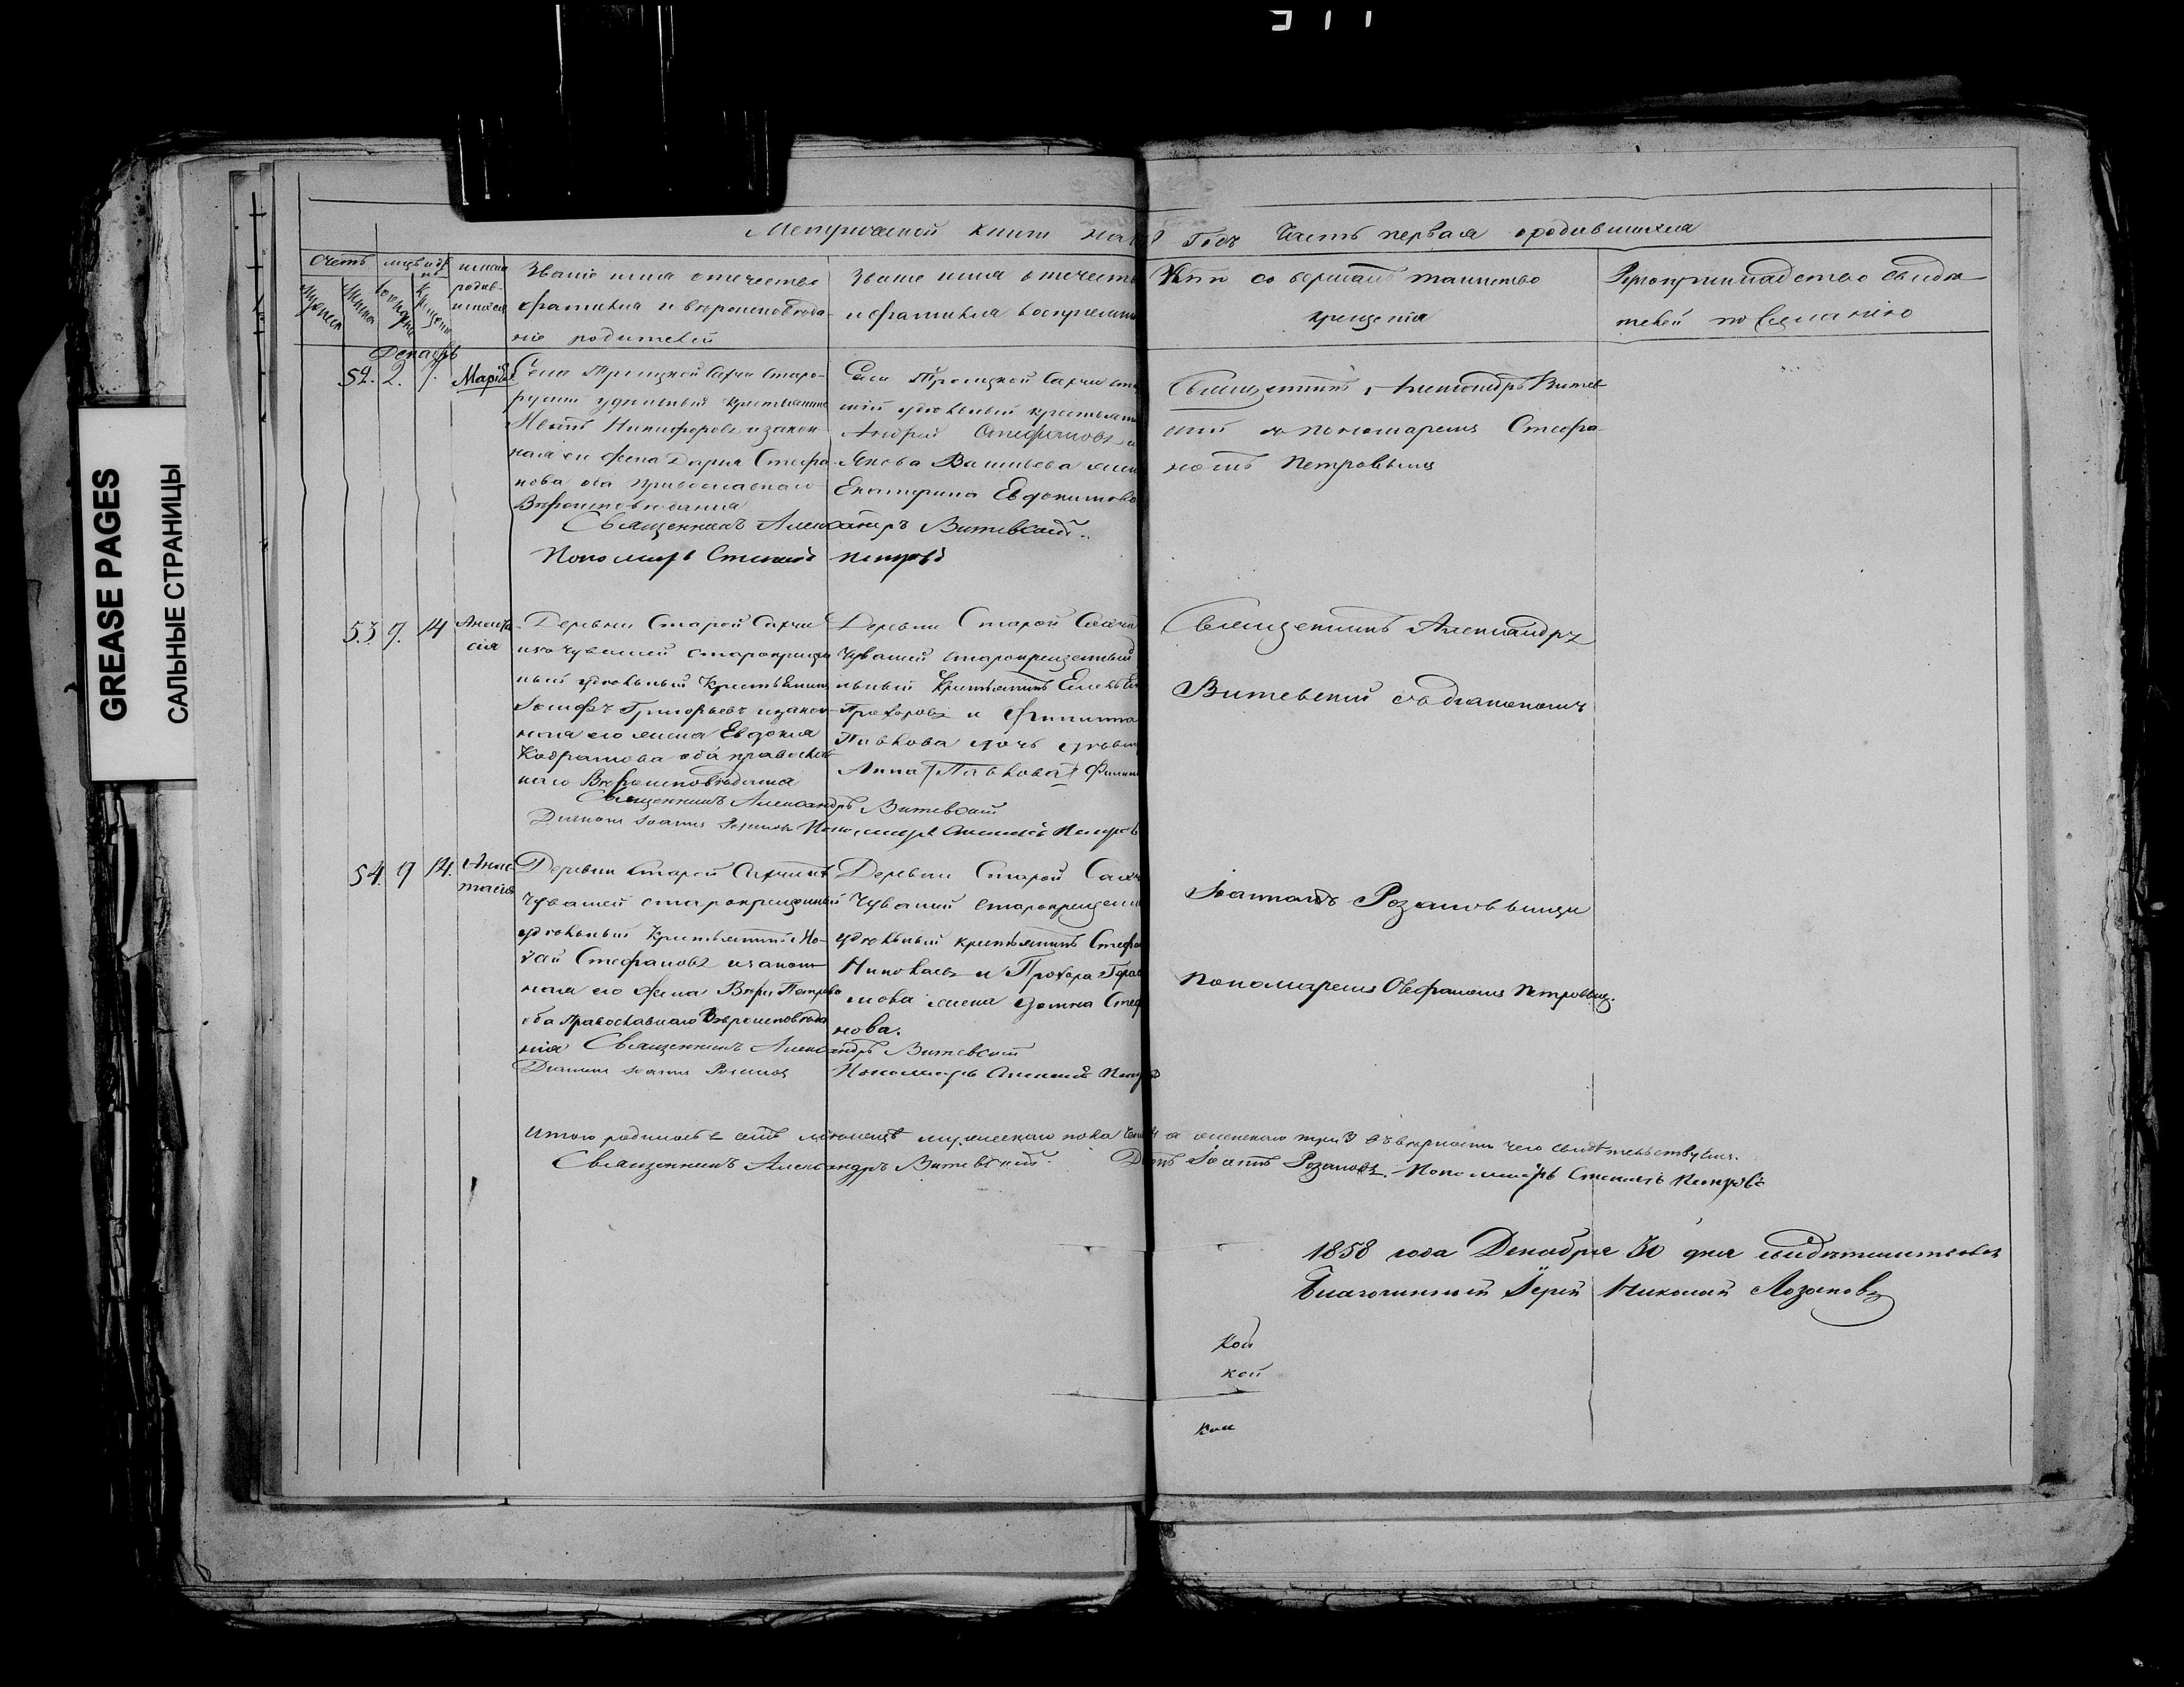 GREASE PAGES
САЛЬНЫЕ СТРАНИЦЫ
Метрической книги на
Годъ Часть первая о родившихся
Счетъ
имена родив-
шихся
Званіе имя отечество
фамилия и вѣроисповѣда-
ніе родителей
Званіе имя отечест
и фамилия воспреемни
Кто совершалъ таинство
крещенія
Рукоприкладство свидѣ
телей по желанію
Декабрь
52. 2. 7. Марія
Села Троицкой Сахчи Старо-
удельный крестьянинъ
Никифоровъ и закон-
ная ея жена Дарія Стефа-
нова оба православнаго
Вѣроисповѣданія
Села Троицкой Сахчи
удѣльный крестьян
Андрей Стефановъ и
Якова Васильева жен
Екатерина Евдокимова
Священникъ Александръ Витев-
скій съ пономаремъ Стефа-
номъ Петровымъ
Священникъ Александръ Витевскій.
Пономарь Степанъ Петровъ
53 9. 14 Анаста
сія
Деревни Старой Сахчи
изъ чувашей старокреще
ный удѣльный крестьянинъ
Іосифъ Григорьевъ и закон-
ная его жена Евдокія
Кодратова оба православ
наго Вѣроисповѣданія
Деревни Старой Сахчи
Чувашей старокрещенный
крестьянинъ
Прохоровъ и Филиппа
Павлова дочь девица
Анна (Павлова)
Священникъ Александръ
Витевскій съ діакономъ
Священникъ Александръ Витевскій
Діаконъ Іоаннъ Розановъ Пономарь Степанъ Петровъ
54. 9 14. Анас-
тасія
Деревни Старой Сахчи изъ
Чувашей старокрещенный
удѣльный крестьянинъ
Стефановъ и закон-
ная его жена Вѣра Петрова
оба Православнаго Вѣроисповѣда
нія
Деревни Старой Сахч
Чувашей старокрещенн
удѣльный крестьянинъ Стефа
Николаевъ и Прохора Гера
мова жена Домна Стеф
нова.
Іоанномъ Розановымъ и
пономаремъ Стефаномъ Петровым.
Священникъ Александръ Витевскій
Діаконъ Іоаннъ Розановъ
Пономарь Степанъ Петровъ
Итого родилось въ семъ мѣсяцѣ мужескаго пола а женскаго три 3 въ вѣрности чего свидѣтельствуемъ.
Священникъ Александръ Витевскій. Іоаннъ Розановъ. Пономарь Степанъ Петровъ
1858 года Декабря 30 дня свидѣтельствовал
Благочинный Іерей Николай Лозановъ
кой
кой